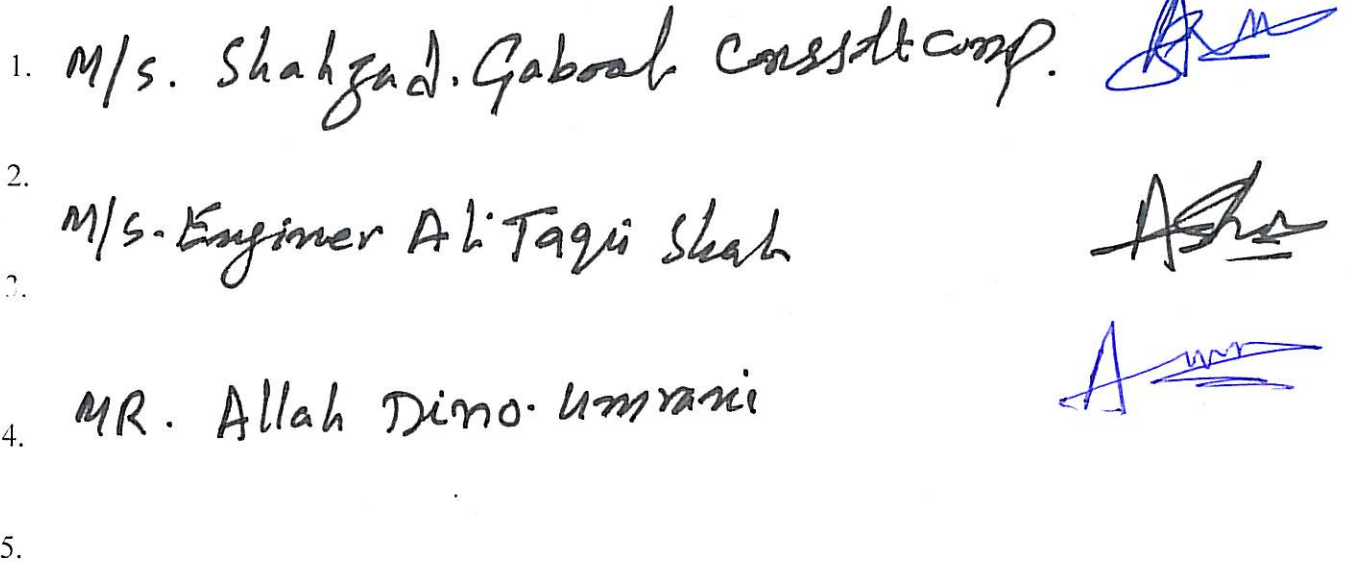 1. M/s. Shahzad. Gabool
2.
M/s. Enginer Ali Taqui Shah
3.
4. MR. Allah Dino. Umrani
5.